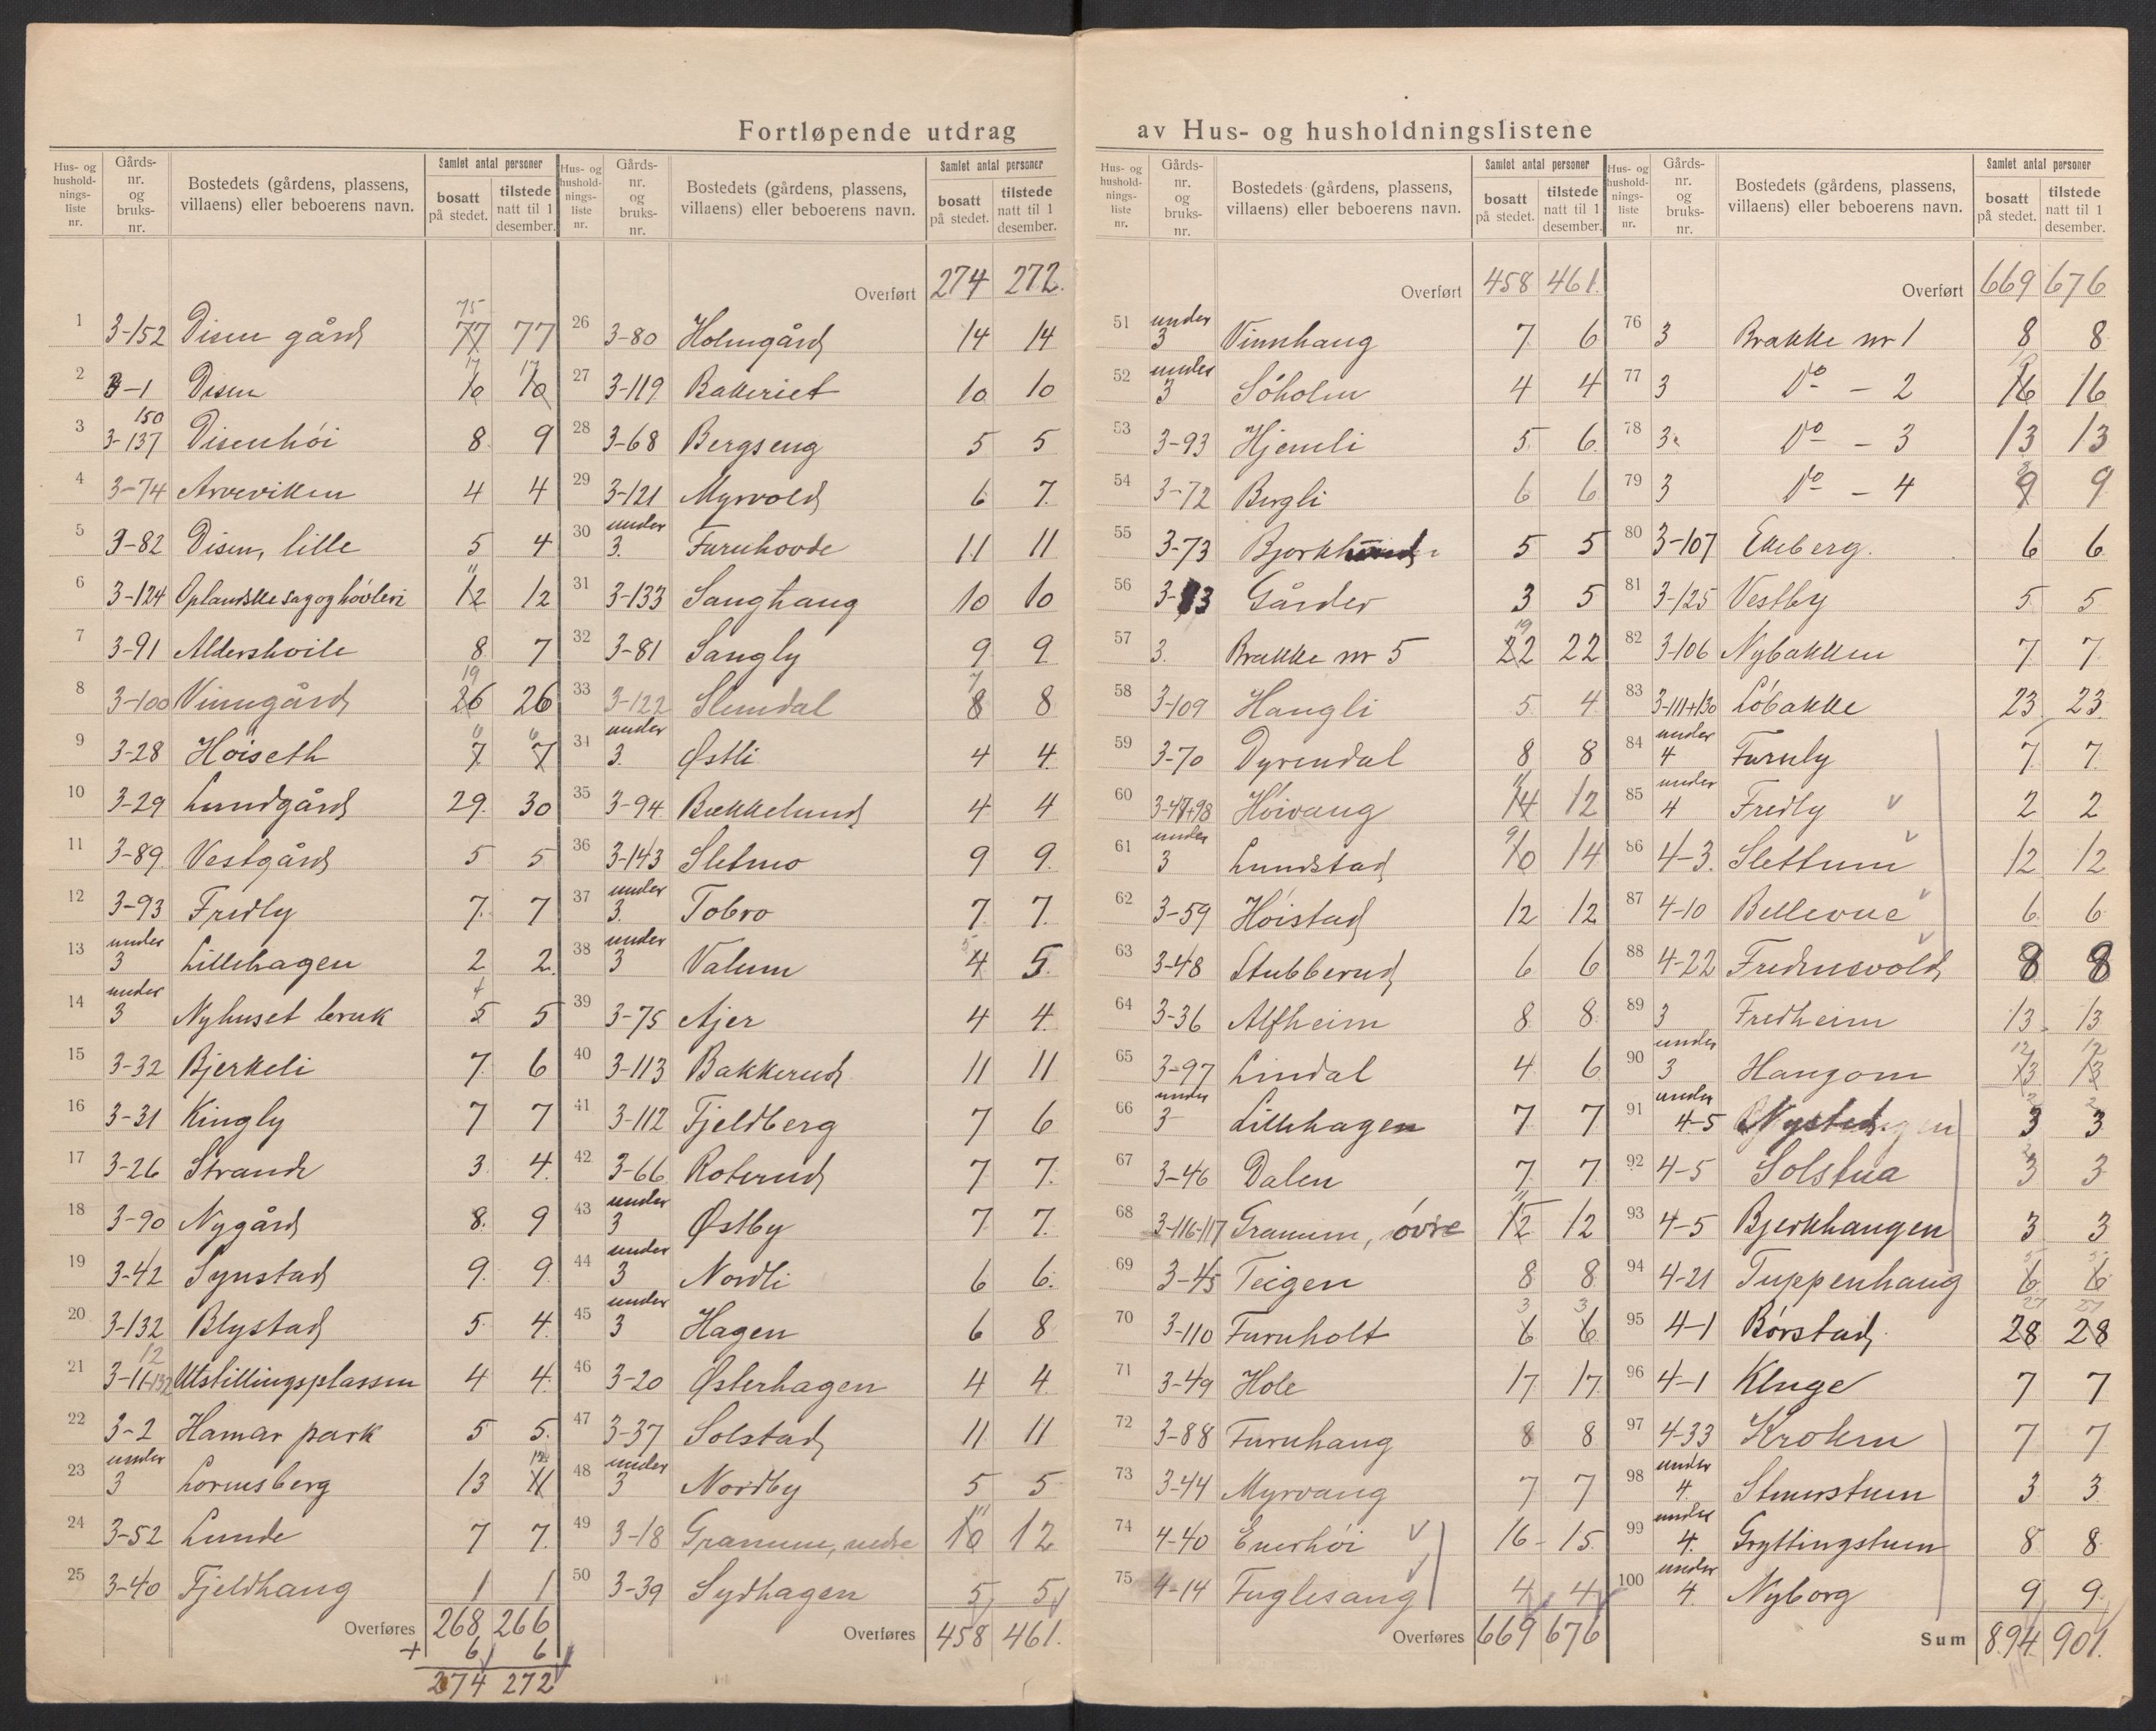 Fortløpende utdrag av Hus- og husholdningslistene
Hus- og hushold- nings- liste nr. | Gårds- nr. og bruks- nr. | Bostedets (gårdens, plassens, villaens) eller beboerens navn. | Samlet antal personer | bosatt på stedet. | tilstede natt til 1 desember.
1 3-152 Disen gård 75 77 77
2 3-1 Disen 17 10 17 10
3 150 3-137 Disenhöi 8 9
4 3-74 Arveviken 4 4
5 3-82 Disen, lille 5 4
6 3-124 Oplandske sag og hövleri 11 12 12
7 3-91 Aldershvile 8 7
8 3-100 Vinngård 19 26 26
9 3-28 Höiseth 6 7 6 7
10 3-29 Lundgård 29 30
11 3-89 Vestgård 5 5
12 3-93 Fredly 7 7
13 under 3 Lillehagen 2 2
14 under 3 Nyhuset bruk 4 5 5
15 3-32 Bjerkeli 7 6
16 3-31 Kingly 7 7
17 3-26 Strand 3 4
18 3-90 Nygård 8 9
19 3-42 Synstad 9 9
20 3-132 Blystad 5 4
21 12 3-11-132 Utstillingsplassen 4 4
22 3-2 Hamar park 5 5
23 under 3 Lorensberg 13 12 11
24 3-52 Lunde 7 7
25 3-40 Fjeldhaug 1 1
Overføres 268 266
+ 6 6
274 272
Hus- og hushold- nings- liste nr. | Gårds- nr. og bruks- nr. | Bostedets (gårdens, plassens, villaens) eller beboerens navn. | Samlet antal personer | bosatt på stedet. | tilstede natt til 1 desember.
Overført 274 272
26 3-80 Holmgård 14 14
27 3-119 Bakeriet 10 10
28 3-68 Bergseng 5 5
29 3-121 Myrvold 6 7
30 under 3 Furuhovde 11 11
31 3-133 Sanghaug 10 10
32 3-81 Sangly 9 9
33 3-122 Slemdal 7 8 8
34 under 3 Østli 4 4
35 3-94 Bækkelund 4 4
36 3-143 Sletmo 9 9
37 under 3 Tobro 7 7
38 under 3 Valum 5 4 5
39 3-75 Ajer 4 4
40 3-113 Bakkerud 11 11
41 3-112 Fjeldberg 7 6
42 3-66 Roterud 7 7
43 under 3 Østby 7 7
44 under 3 Nordli 6 6
45 under 3 Hagen 6 8
46 3-20 Østerhagen 4 4
47 3-37 Solstad 11 11
48 under 3 Nordby 5 5
49 3-18 Granum, nedre 11 10 12
50 3-39 Sydhagen 5 5
Overføres 458 461
Hus- og hushold- nings- liste nr. | Gårds- nr. og bruks- nr. | Bostedets (gårdens, plassens, villaens) eller beboerens navn. | Samlet antal personer | bosatt på stedet. | tilstede natt til 1 desember.
Overført 458 461
51 under 3 Vinnhaug 7 6
52 under 3 Söholm 4 4
53 3-93 Hjemli 5 6
54 3-72 Bergli 6 6
55 3-73 5 5
56 Gårder 3 5
57 3. Brakke nr 5 19 22 22
58 3-109 Haugli 5 4
59 3-70 Dyrendal 8 8
60 3-47+98 Höivang 11 14 12
61 under 3 Lundstad 9 10 14
62 3-59 Höistad 12 12
63 3-48 Stubberud 6 6
64 3-36 Alfheim 8 8
65 3-97 Lindal 4 6
66 under 3 Lillehagen 7 7
67 3-46 Dalen 7 7
68 3-116-117 Granum, övre 11 12 12
69 3-45 Teigen 8 8
70 3-110 Furuholt 3 6 3 6
71 3-49 Hole 17 17
72 3-88 Furuhaug 8 8
73 3-44 Myrvang 7 7
74 4-40 Enerhöi 16 15
75 4-14 Fuglesang 4 4
Overføres 669 676
Hus- og hushold- nings- liste nr. | Gårds- nr. og bruks- nr. | Bostedets (gårdens, plassens, villaens) eller beboerens navn. | Samlet antal personer | bosatt på stedet. | tilstede natt til 1 desember.
Overført 669 676
76 3 Brakke nr 1 8 8
77 3 Do - 2 16 16
78 3. Do - 3 13 13
79 3 Do - 4 9 9
80 3-107 Ekeberg. 6 6
81 3-125 Vestby 5 5
82 3-106 Nybakken 7 7
83 3-111+130 Löbakke 23 23
84 under 4 Furuly 7 7
85 under 4 Fredly 2 2
86 4-3. Slettum 12 12
87 4-10 Bellevue 6 6
88 4-22 Fredensvold 8 8
89 3 Fredheim 13 13
90 under 3 Haugom 12 13 12 13
91 under 4-5 2 3 2 3
92 4-5 Solstua 2 3 3
93 4-5 Bjerkhaugen 3 3
94 4-21 Tuppenhaug 5 6 5 6
95 4-1 Börstad 27 28 27 28
96 4-1 Kluge 7 7
97 4-33 Kroken 7 7
98 under 4. Stenerstuen 3 3
99 under 4. Gryttingstuen 8 8
100 under 4. Nyborg 9 9
Sum 894 901